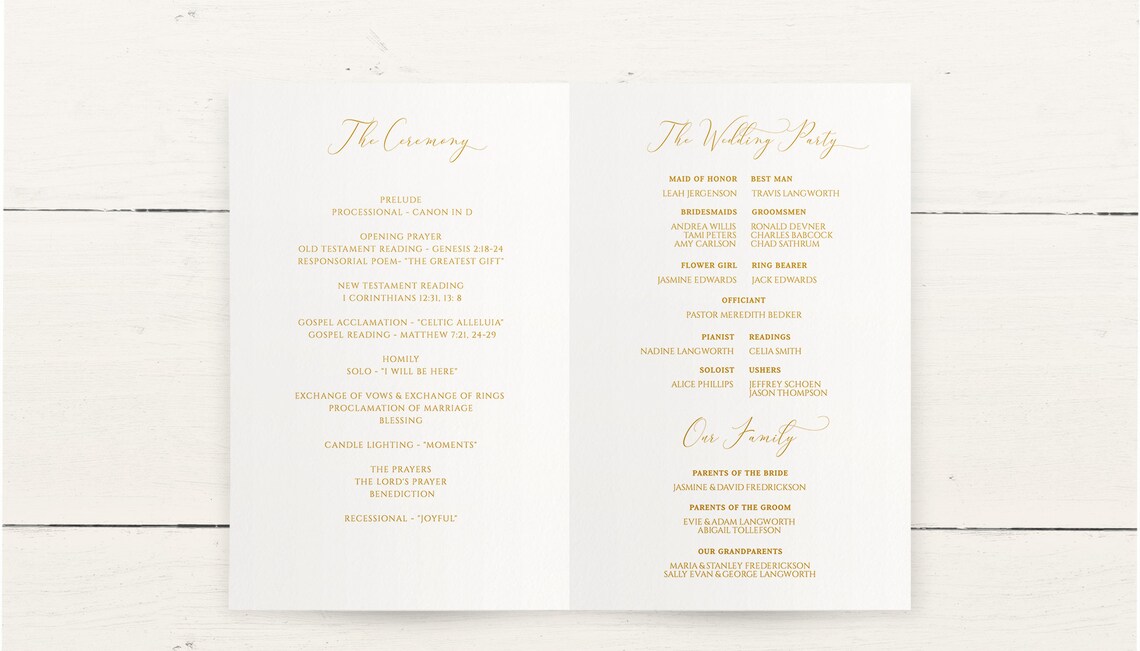 The Ceremony
PRELUDE
PROCESSIONAL - CANON IN D
OPENING PRAYER
OLD TESTAMENT READING - GENESIS 2:18-24
RESPONSORIAL POEM- "THE GREATEST GIFT"
NEW TESTAMENT READING
1 CORINTHIANS 12:31, 13: 8
GOSPEL ACCLAMATION - "CELTIC ALLELUIA"
GOSPEL READING - MATTHEW 7:21, 24-29
HOMILY
SOLO - "I WILL BE HERE"
EXCHANGE OF VOWS & EXCHANGE OF RINGS
PROCLAMATION OF MARRIAGE
BLESSING
CANDLE LIGHTING - "MOMENTS"
THE PRAYERS
THE LORD'S PRAYER
BENEDICTION
RECESSIONAL - "JOYFUL"
The Wedding Party
MAID OF HONOR BEST MAN
LEAH JERGENSON TRAVIS LANGWORTH
BRIDESMAIDS GROOMSMEN
ANDREA WILLIS RONALD DEVNER
TAMI PETERS CHARLES BABCOCK
AMY CARLSON CHAD SATHRUM
FLOWER GIRL RING BEARER
JASMINE EDWARDS JACK EDWARDS
OFFICIANT
PASTOR MEREDITH BEDKER
PIANIST READINGS
NADINE LANGWORTH CELIA SMITH
SOLOIST USHERS
ALICE PHILLIPS JEFFREY SCHOEN
JASON THOMPSON
Our Family
PARENTS OF THE BRIDE
JASMINE & DAVID FREDRICKSON
PARENTS OF THE GROOM
EVIE & ADAM LANGWORTH
ABIGAIL TOLLEFSON
OUR GRANDPARENTS
MARIA & STANLEY FREDERICKSON
SALLY EVAN & GEORGE LANGWORTH